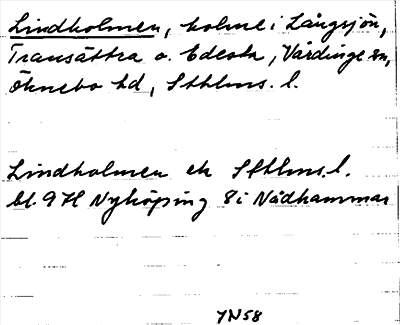 Lindholmen, holme i Långsjön,
Transättra o. Edesta, Vårdinge sn,
Öknebo hd, Sthlms. l.
Lindholmen ek Sthlms. l.
bl. 9H Nyköping 8i Nådhammar
YN58